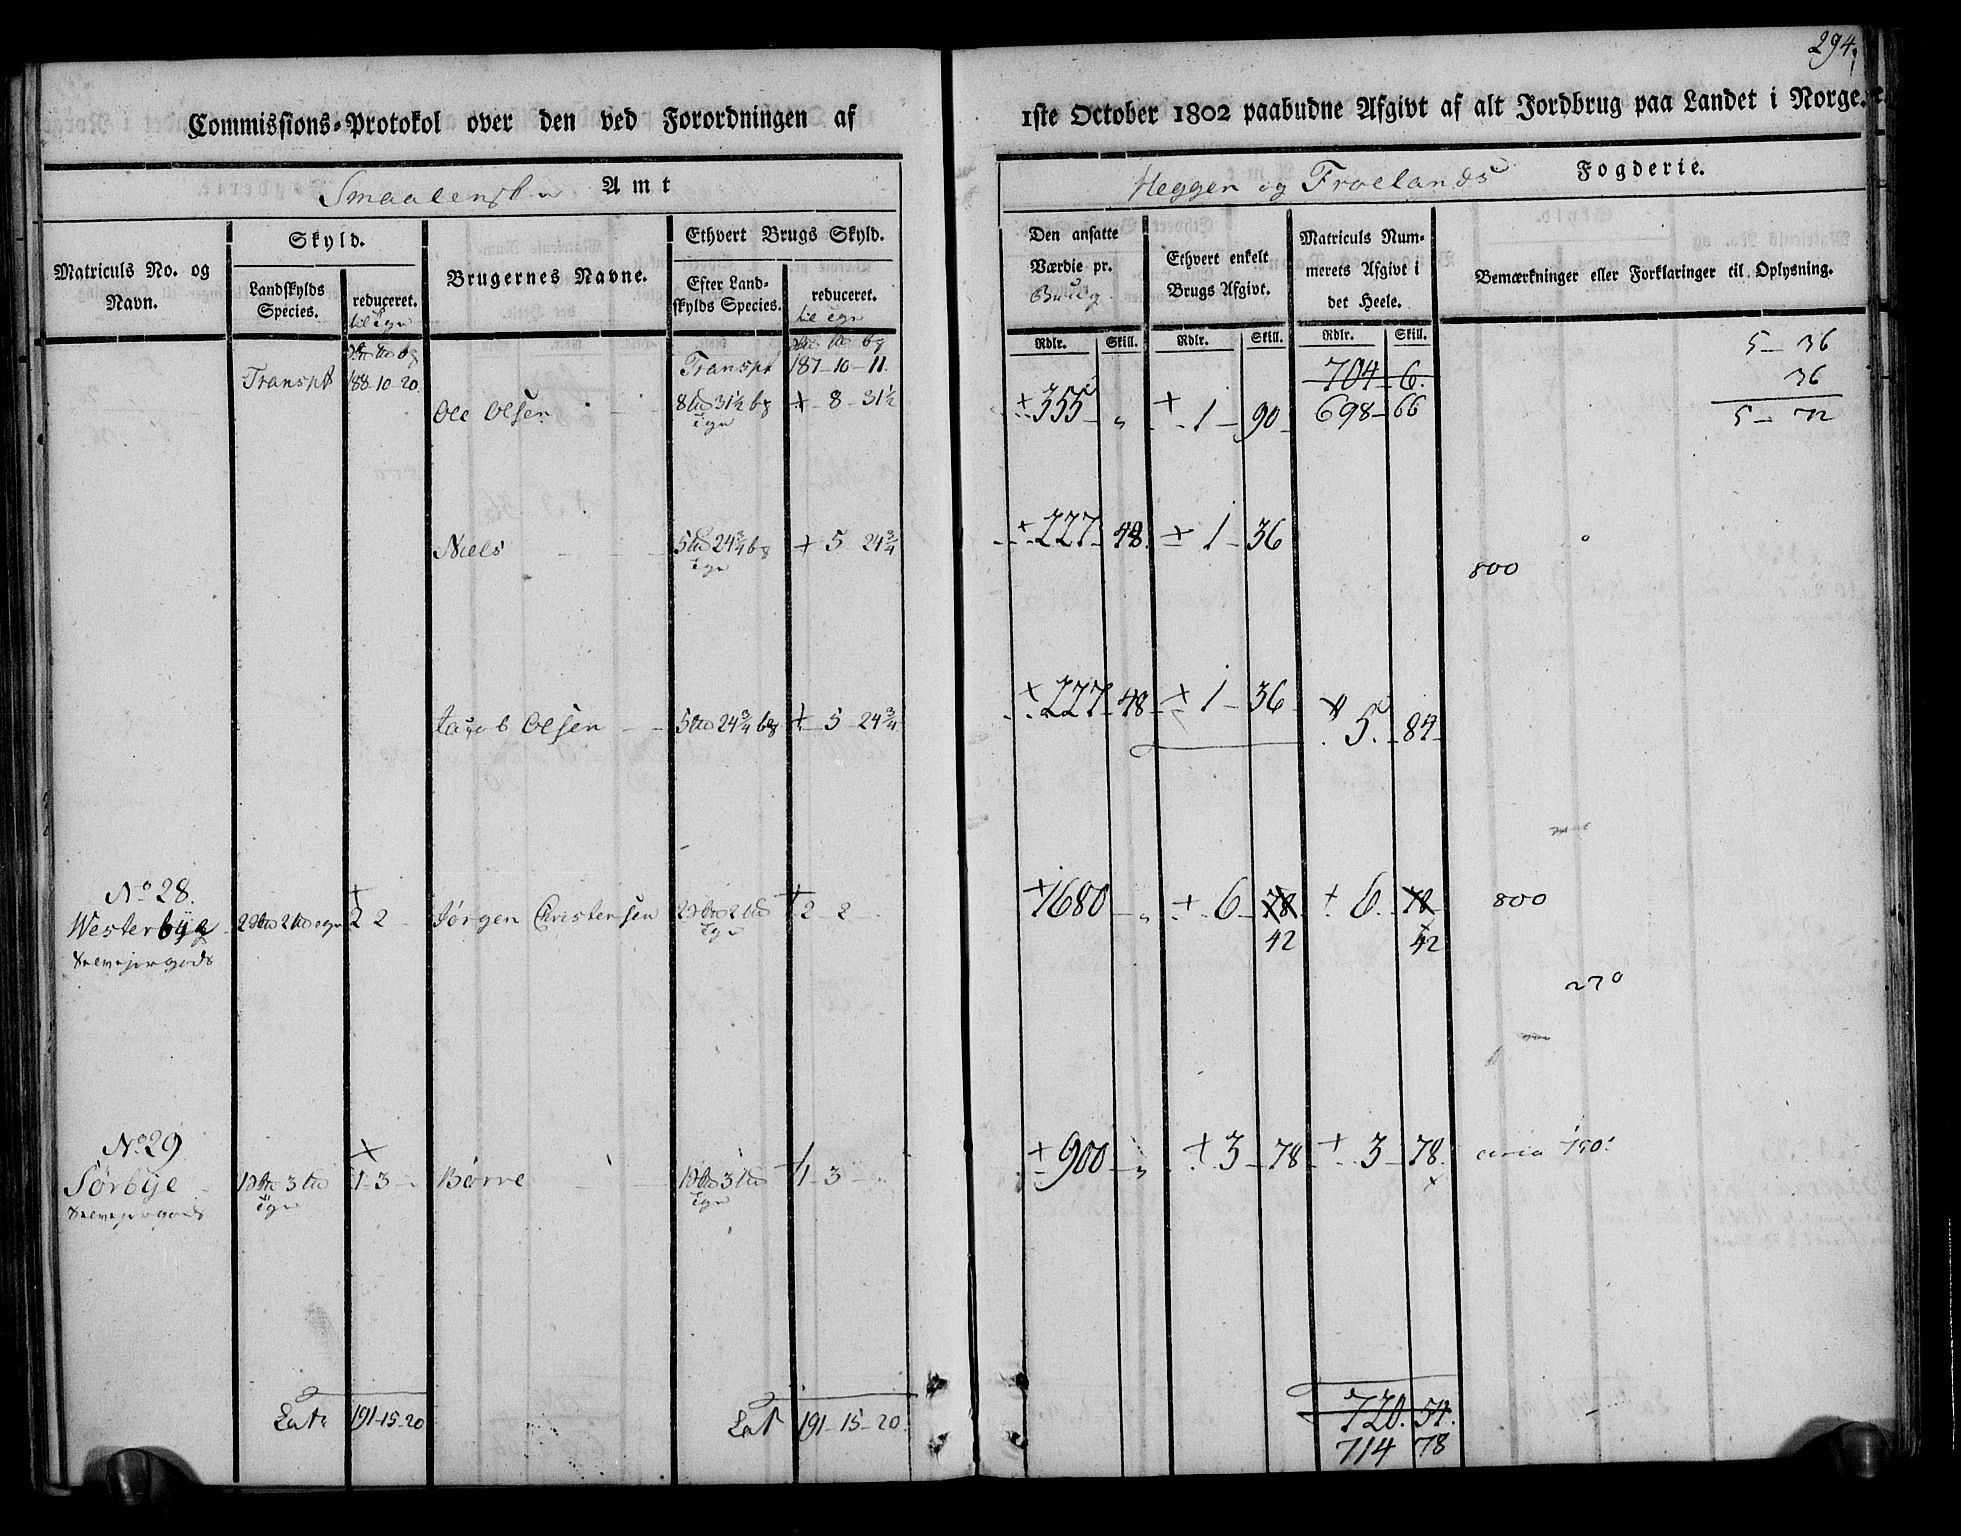 294.
Commissions-Protokol over den ved Forordningen af 1ste October 1802 paabudne Afgivt af alt Jordbrug paa Landet i Norge.
Smaalenske Amt
Heggen og Froelands Fogderie.
Matriculs No. og Navn.
Skyld.
Landskylds Species.
reduceret.
til Tgn
Brugernes Navne.
Ethvert Brugs Skyld.
Efter Landskylds Species.
reduceret.
til Tgn
Den ansatte Værdie pr.
Ethvert enkelt Brugs Afgivt.
Matriculs Nummerets Afgivt i det Heele.
Bemærkninger eller Forklaringer til Oplysning.
Rdlr. Skill. Rdlr. Skill. Rdlr. Skill.
Transpt 188-10-20. Transpt 187-10-11. 704-6. 5-36
698-66 36
5-72
Ole Olsen 8 31½ bg + 8-31½ +355 „ + 1-90
Tgn
Niels 5 24¾ bg + 5 24¾ +227-48 + 1-36
Tgn
800
Jacob Olsen 5 24¾ bg + 5-24¾ +227-48 + 1-36 5. 84
No 28.
Westerbye 2 2 Tgn 2 2 Jørgen Christensen 2 2 + 2 2 +1680 „ + 6-78 + 6. 78 800
Tgn 42 42
Selvejergods
270
No 29
Sørbye 1 3 1-3 Børre 1 3 1-3 +900 „ + 3-78 + 3-78. circa 150
Tgn Tgn
Selvejergods
Lat 191-15-20 Lat 191-15-20. 720. 54.
714 78